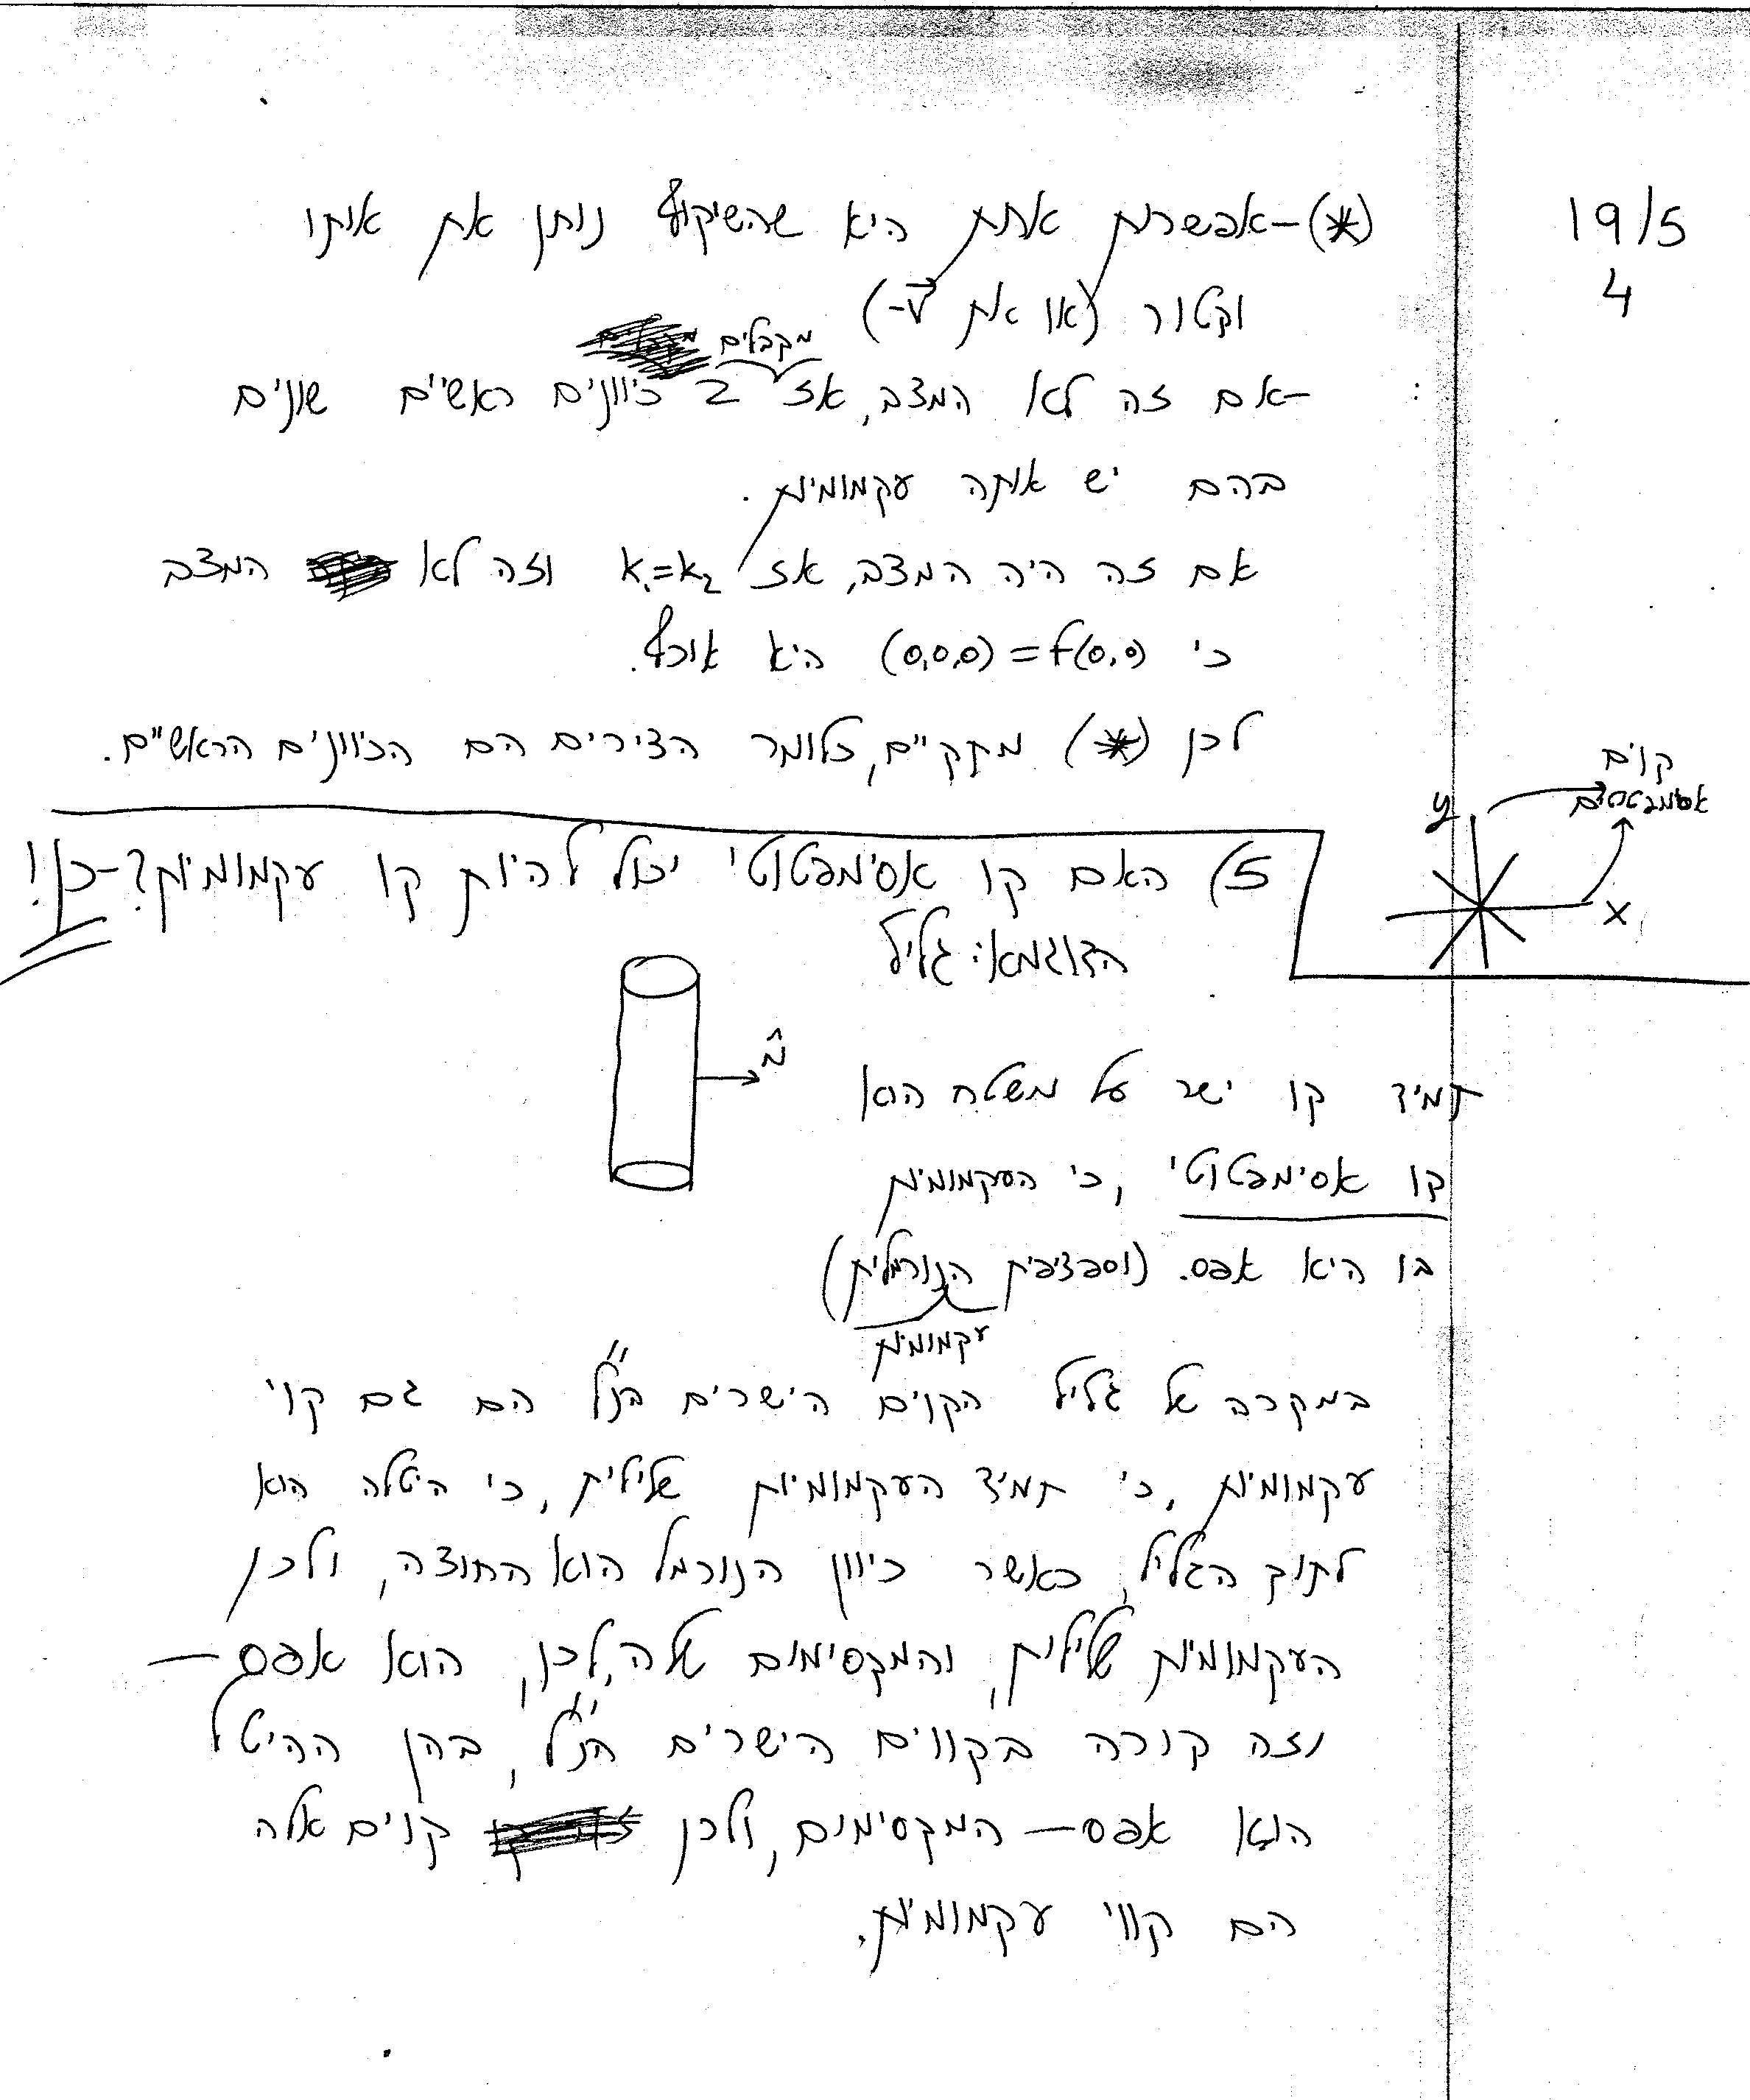 19/5
4
(*) – אפשרות אחת היא שהשיקוף נותן את אותו
וקטור (או את -v)
מקבלים
– אם זה לא המצב, אז 2 כיוונים ראשיים שונים
בהם יש אותה עקמומיות.
אם זה היה המצב, אז k₁=k₂ וזה לא המצב
כי f(0,0)=(0,0,0) היא אוכף.
לכן (*) מתקיים, כלומר הצירים הם הכיוונים הראשיים.
קוים
אסימפטוטים
y
x
5) האם קו אסימפטוטי יכול להיות קו עקמומיות? – כן!
הדוגמא: גליל
n̂
תמיד קו ישר על משטח הוא
קו אסימפטוטי, כי העקמומיות
בו היא אפס. (וספציפית הנורמלית)
עקמומיות
במקרה של גליל הקוים הישרים הנ"ל הם גם קוי
עקמומיות, כי תמיד העקמומיות שלילית, כי היטלה הוא
לתוך הגליל, כאשר כיוון הנורמל הוא החוצה, ולכן
העקמומיות שלילית, והמקסימום שלה, לכן, הוא אפס –
וזה קורה בקווים הישרים הנ"ל, בהן ההיטל
הוא אפס – המקסימום, ולכן קוים אלה
הם קווי עקמומיות.